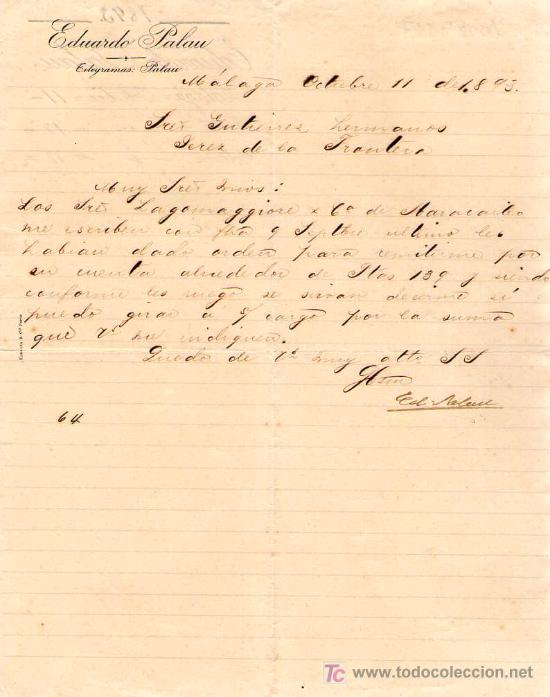 Eduardo Palau
Telegramas: Palau
Málaga Octubre 11 de 1.893.
Sres Gutierrez hermanos
Jerez de la Frontera
Muy Sres mios:
Los Sres Lagomaggiore & Ca de Maracaibo
me escriben con fha 9 Septbre ultimo les
habian dado orden para remitirme por
su cuenta alrededor de Ptas 139 y siendo
conforme les ruego se sirvan decirme si
puedo girar a s/ cargo por la suma
que Vs me indiquen.
Quedo de Vs muy atto SS
Ed. Palau
64
TC www.todocoleccion.net